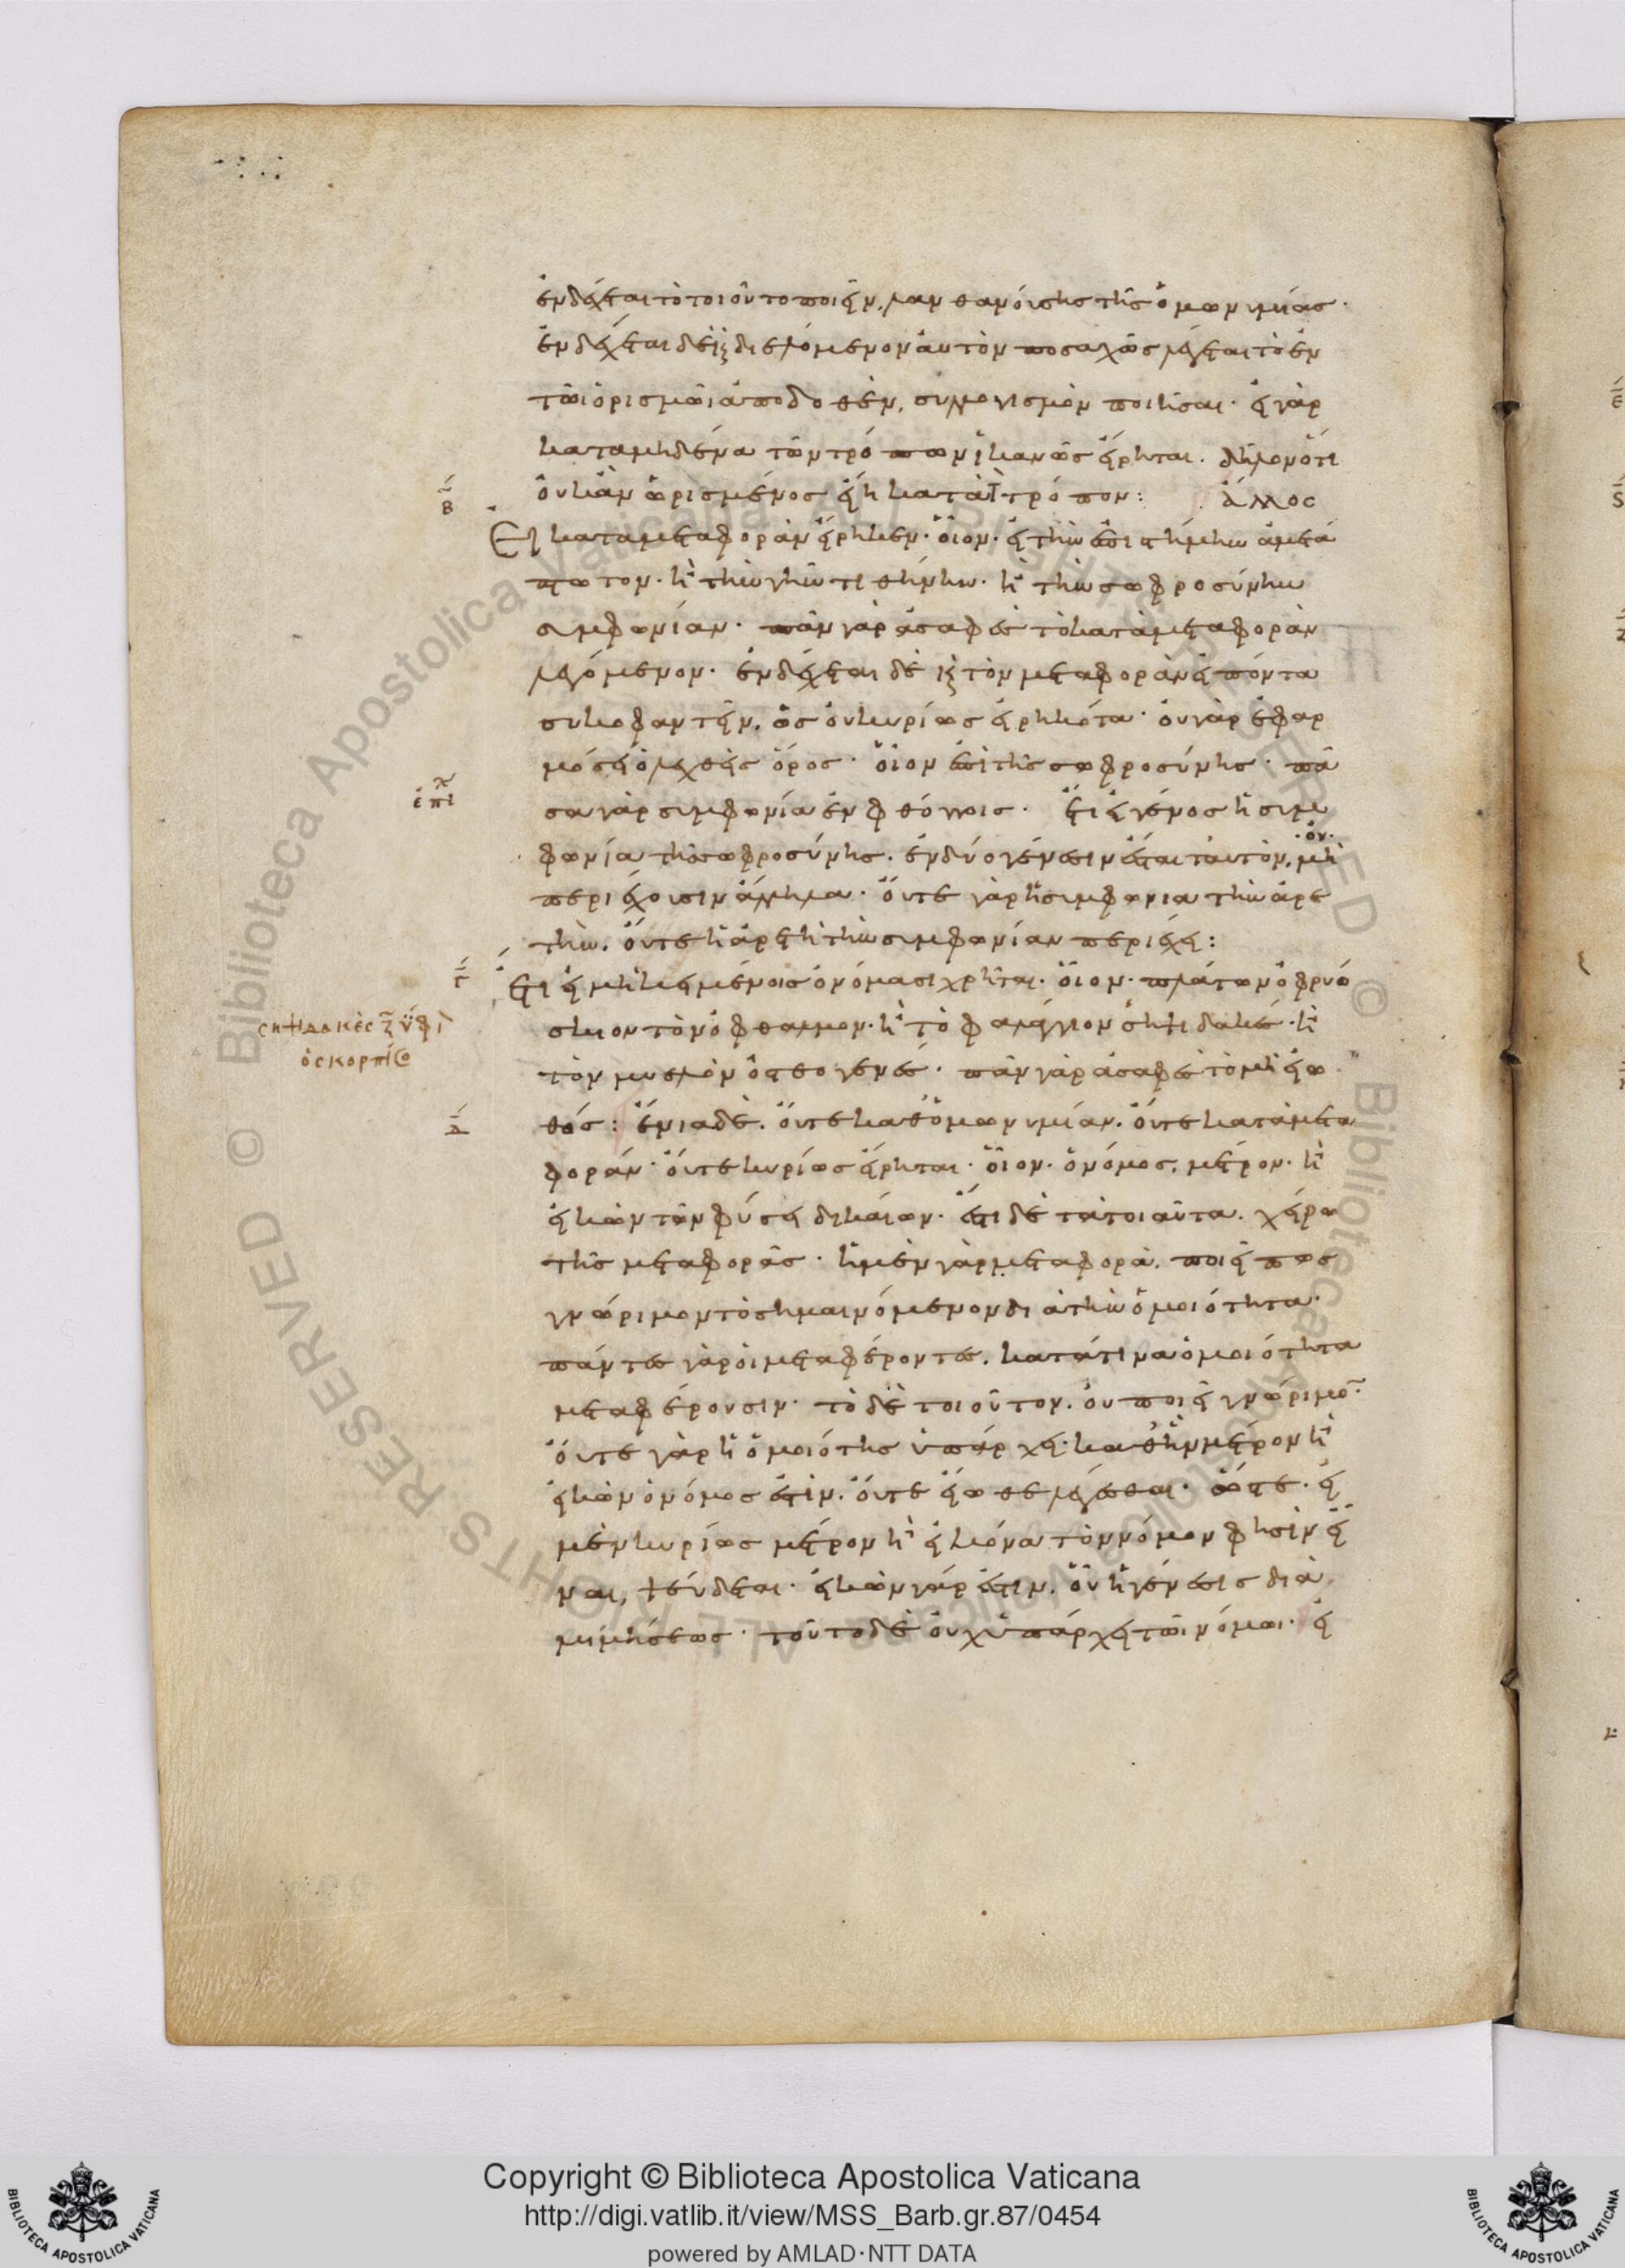 ἐνδέχεται τὸ τοιοῦτο ποιεῖν, λανθανούσης τῆς ὁμωνυμίας·
ἐνδέχεται δὲ καὶ διελόμενον αὐτὸν ποσαχῶς λέγεται τὸ ἐν
τῶι ὁρισμῶι ἀποδοθὲν, συλλογισμὸν ποιῆσαι· εἰ γὰρ
κατὰ μηδένα τῶν τρόπων ἱκανῶς εἴρηται. δῆλον ὅτι
οὐκ ἂν ὡρισμένος εἴη κατὰ τρόπον: ἄλλος
β
Εἰ κατὰ μεταφορὰν εἴρηκεν· οἷον· εἰ τὴν ἐπιστήμην ἀμετά
πτωτον· ἢ τὴν γῆν τιθήνην· ἢ τὴν σωφροσύνην
συμφωνίαν· πᾶν γὰρ ἀσαφὲς τὸ κατὰ μεταφορὰν
λεγόμενον· ἐνδέχεται δὲ καὶ τὸν μεταφορὰν εἰπόντα
συκοφαντεῖν, ὡς οὐ κυρίως εἰρηκότα· οὐ γὰρ ἐφαρ
μόσει ὁ λεχθεὶς ὅρος· οἷον ἐπὶ τῆς σωφροσύνης· πᾶ
ἐπὶ
σα γὰρ συμφωνία ἐν φθόγγοις· ἔτι εἰ γένος ἡ συμ
φωνία τῆς σωφροσύνης. ἐν δύο γένεσιν ἔσται ταυτὸν, μὴ
·όν·
περιέχουσιν ἄλληλα· οὔτε γὰρ ἡ συμφωνία τὴν ἀρε
τὴν. οὔτε ἡ ἀρετὴ τὴν συμφωνίαν περιέχει:
γ
ἔτι εἰ μὴ κειμένοις ὀνόμασι χρῆται· οἷον· πλάτων ὀφρυό
σκιον τὸν ὀφθαλμον· ἢ τὸ φαλάγγιον σηψιδακές· ἢ
σηψιδακὲς
ὁ σκορπίος
τὸν μυελὸν ὀστεογενές· πᾶν γὰρ ἀσαφὲς τὸ μὴ εἰω
δ
θός: ἔνια δὲ. οὔτε καθ' ὁμωνυμίαν. οὔτε κατὰ μετα
φοράν· οὔτε κυρίως εἴρηται· οἷον· ὁ νόμος, μέτρον· ἢ
εἰκὼν τῶν φύσει δικαίων· ἔστι δὲ τὰ τοιαῦτα. χείρω
τῆς μεταφορᾶς· ἡ μὲν γὰρ μεταφορὰ, ποιεῖ πως
γνώριμον τὸ σημαινόμενον διὰ τὴν ὁμοιότητα·
πάντες γὰρ οἱ μεταφέροντες, κατὰ τινα ὁμοιότητα
μεταφέρουσιν· τὸ δὲ τοιοῦτον. οὐ ποιεῖ γνώριμο̄·
οὔτε γὰρ ἡ ὁμοιότης ὑπάρχει· καθ' ἣν μέτρον ἢ
εἰκὼν ὁ νόμος ἐστὶν. οὔτε εἴωθε λέγεσθαι· ὥστε· εἰ
μὲν κυρίως μέτρον ἢ εἰκόνα τὸν νόμον φησὶν εἶ
ναι, ψεύδεται· εἰκὼν γάρ ἐστιν. οὗ ἡ γένεσις διὰ
μιμήσεως· τοῦτο δὲ οὐχ ὑπάρχει τῶι νόμωι· εἰ
© Biblioteca Apostolica Vaticana ALL RIGHTS RESERVED
Copyright © Biblioteca Apostolica Vaticana
http://digi.vatlib.it/view/MSS_Barb.gr.87/0454
powered by AMLAD·NTT DATA
BIBLIOTECA APOSTOLICA VATICANA
BIBLIOTECA APOSTOLICA VATICANA